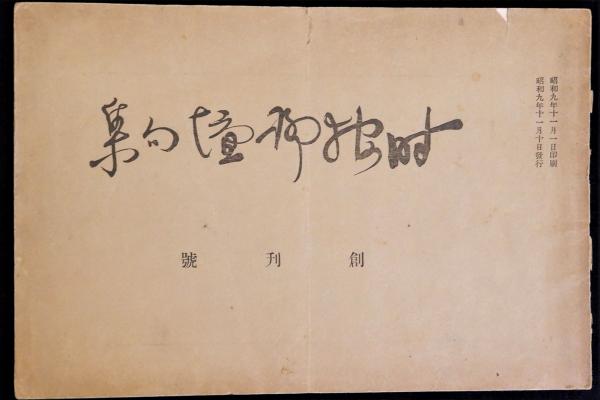 昭和九年十一月一日印刷
昭和九年十一月十日發行
時報柳壇句集
創刊號